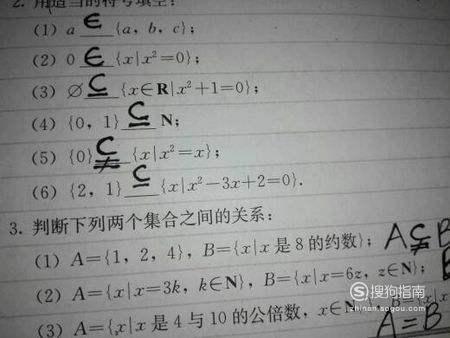 2. 用适当的符号填空:
(1) a ∈ {a, b, c};
(2) 0 ∈ {x|x²=0};
(3) ∅ ⊆ {x∈R|x²+1=0};
(4) {0, 1} ⊆ N;
(5) {0} ⫋ {x|x²=x};
(6) {2, 1} ⊆ {x|x²-3x+2=0}.
3. 判断下列两个集合之间的关系:
(1) A={1, 2, 4}, B={x|x 是 8 的约数}; A⫋B
(2) A={x|x=3k, k∈N}, B={x|x=6z, z∈N};
(3) A={x|x 是 4 与 10 的公倍数, x∈N
A=B
搜狗指南
zhinan.sogou.com